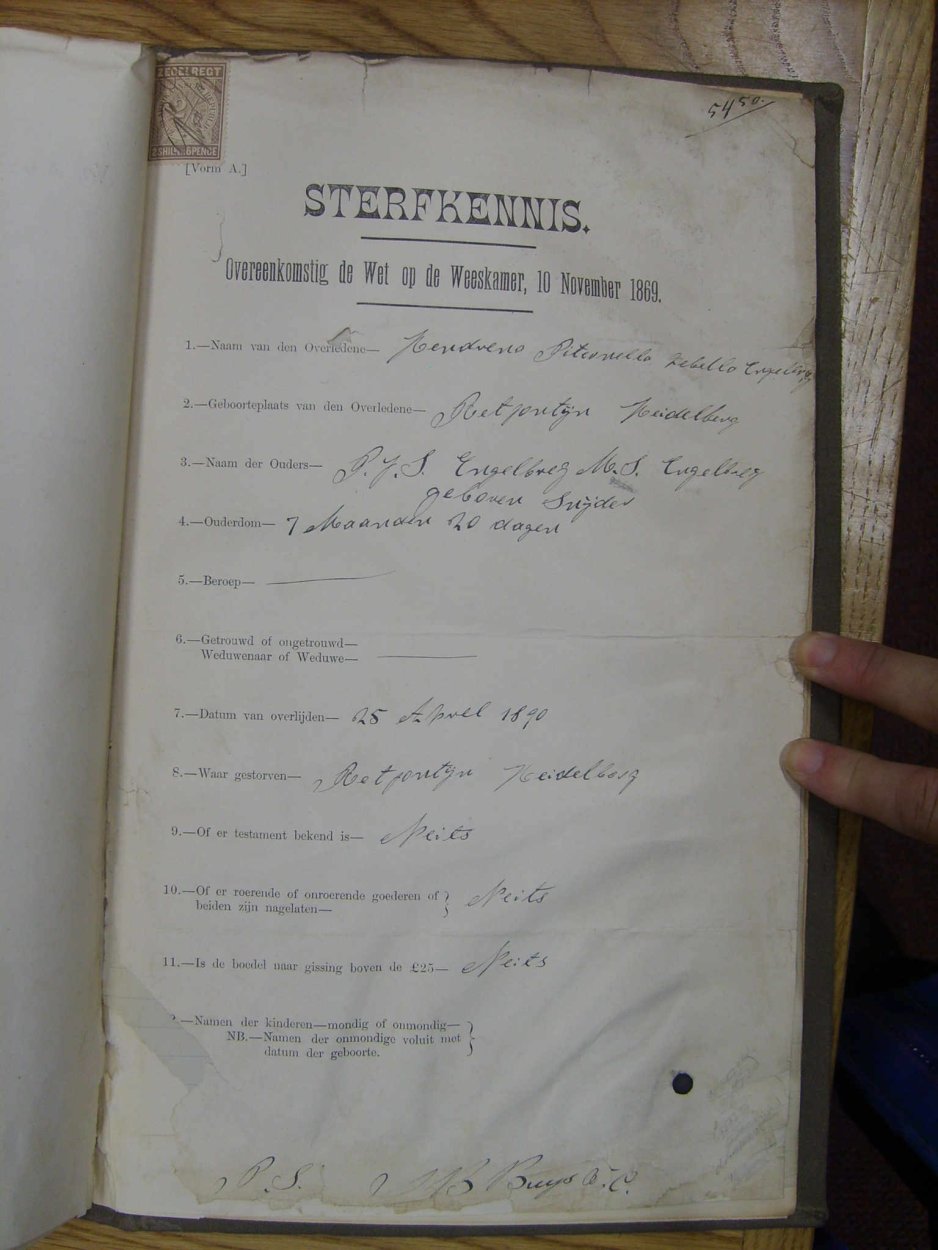 ZEGELREGT
2 SHILL. 6 PENCE
5450.
[Vorm A.]
STERFKENNIS.
Overeenkomstig de Wet op de Weeskamer, 10 November 1869.
1.—Naam van den Overledene— Hendrena Pitronella Zebella Engelbreg
2.—Geboorteplaats van den Overledene— Heidelberg
3.—Naam der Ouders— P. J. S. Engelbreg M. S. Engelbreg
geboren Snijder
4.—Ouderdom— 7 Maanden 20 dagen
5.—Beroep—
6.—Getrouwd of ongetrouwd—
Weduwenaar of Weduwe—
7.—Datum van overlijden— 25 April 1890
8.—Waar gestorven— Heidelberg
9.—Of er testament bekend is— Neits
10.—Of er roerende of onroerende goederen of
beiden zijn nagelaten— Neits
11.—Is de boedel naar gissing boven de £25— Neits
—Namen der kinderen—mondig of onmondig—
NB.—Namen der onmondige voluit met
datum der geboorte.
P. S. Buys